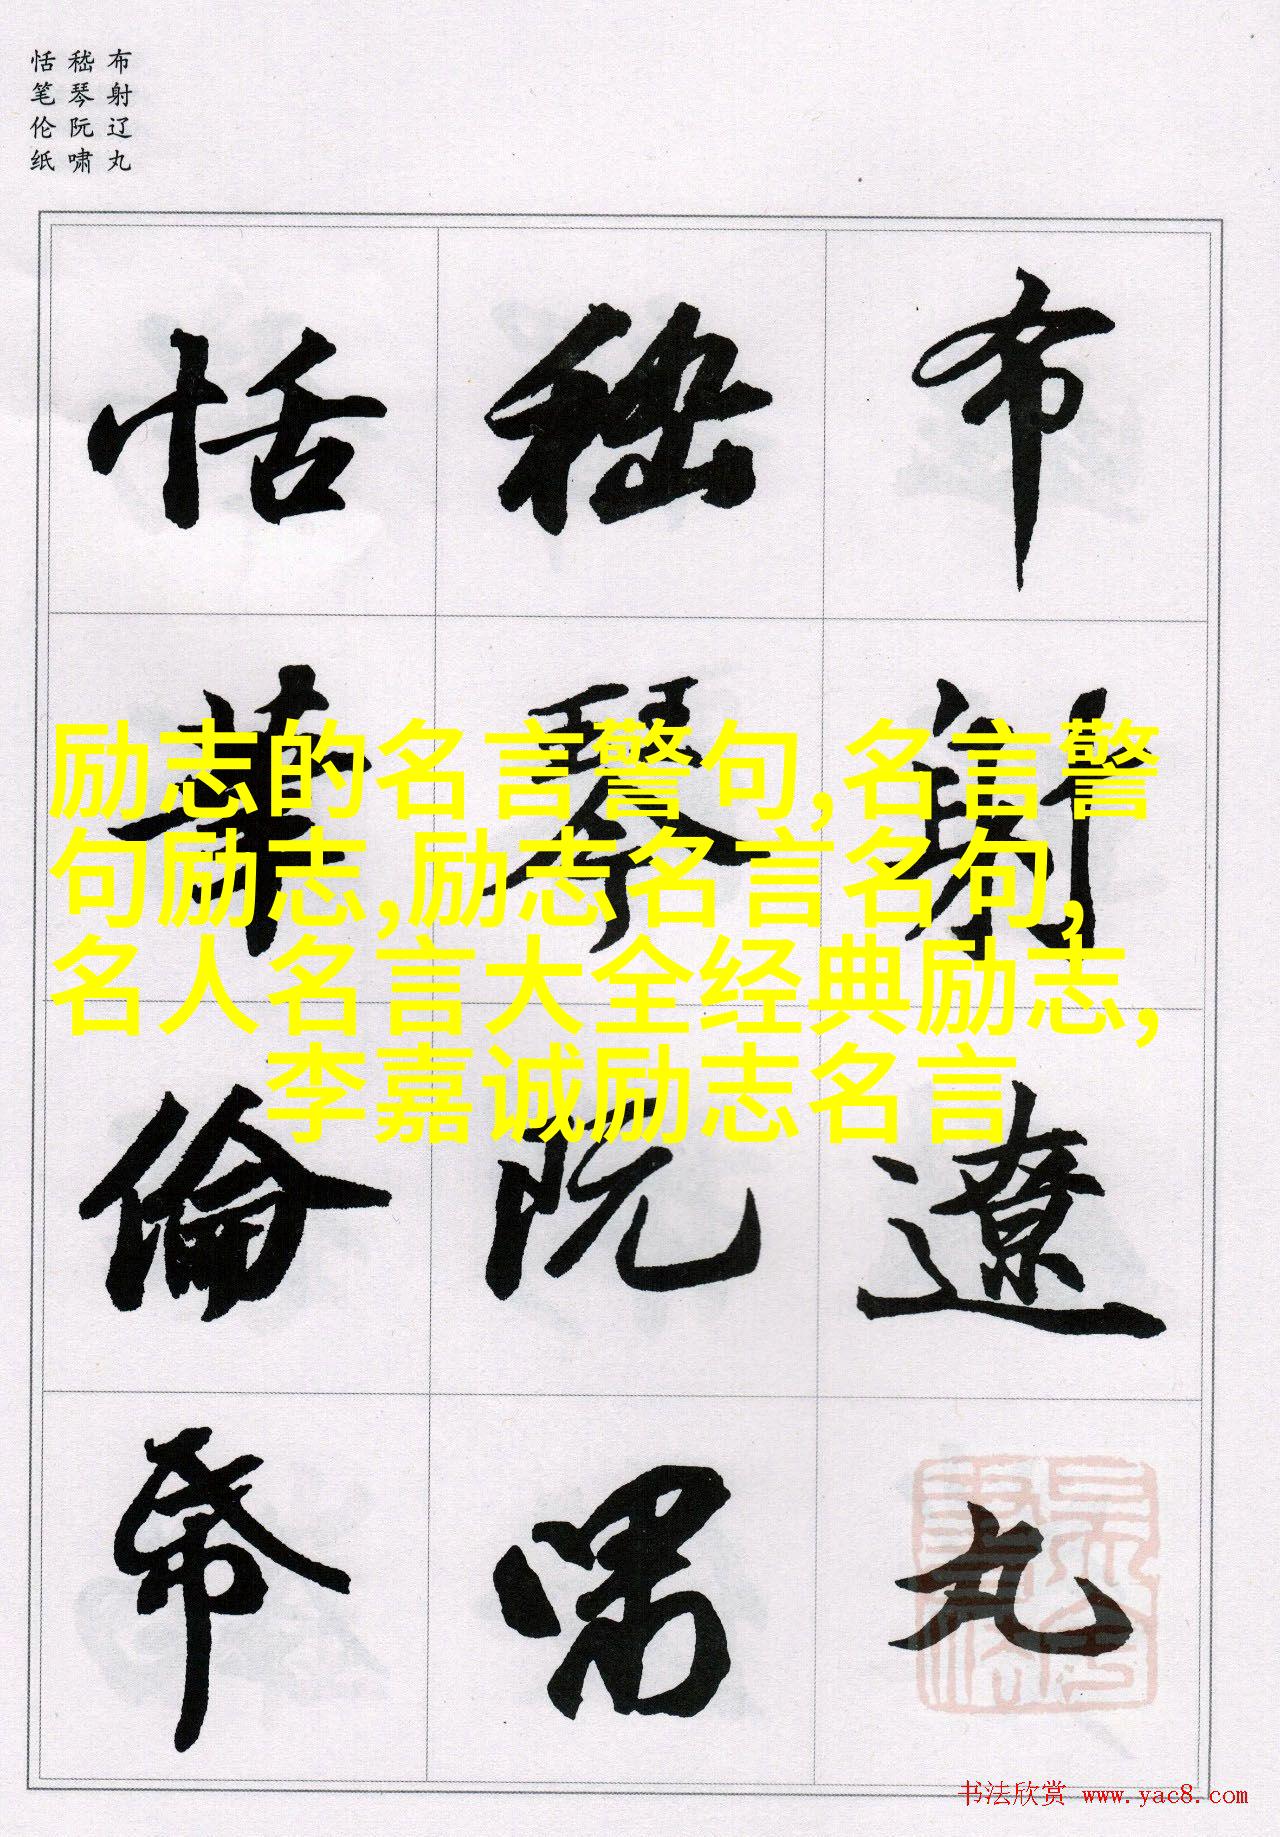 布射辽丸
嵇琴阮啸
恬笔伦纸
布射遼丸
嵇琴阮嘯
恬筆倫帋
励志的名言警句,名言警
句励志,励志名言名句,
名人名言大全经典励志,
李嘉诚励志名言
书法欣赏 www.yac8.com